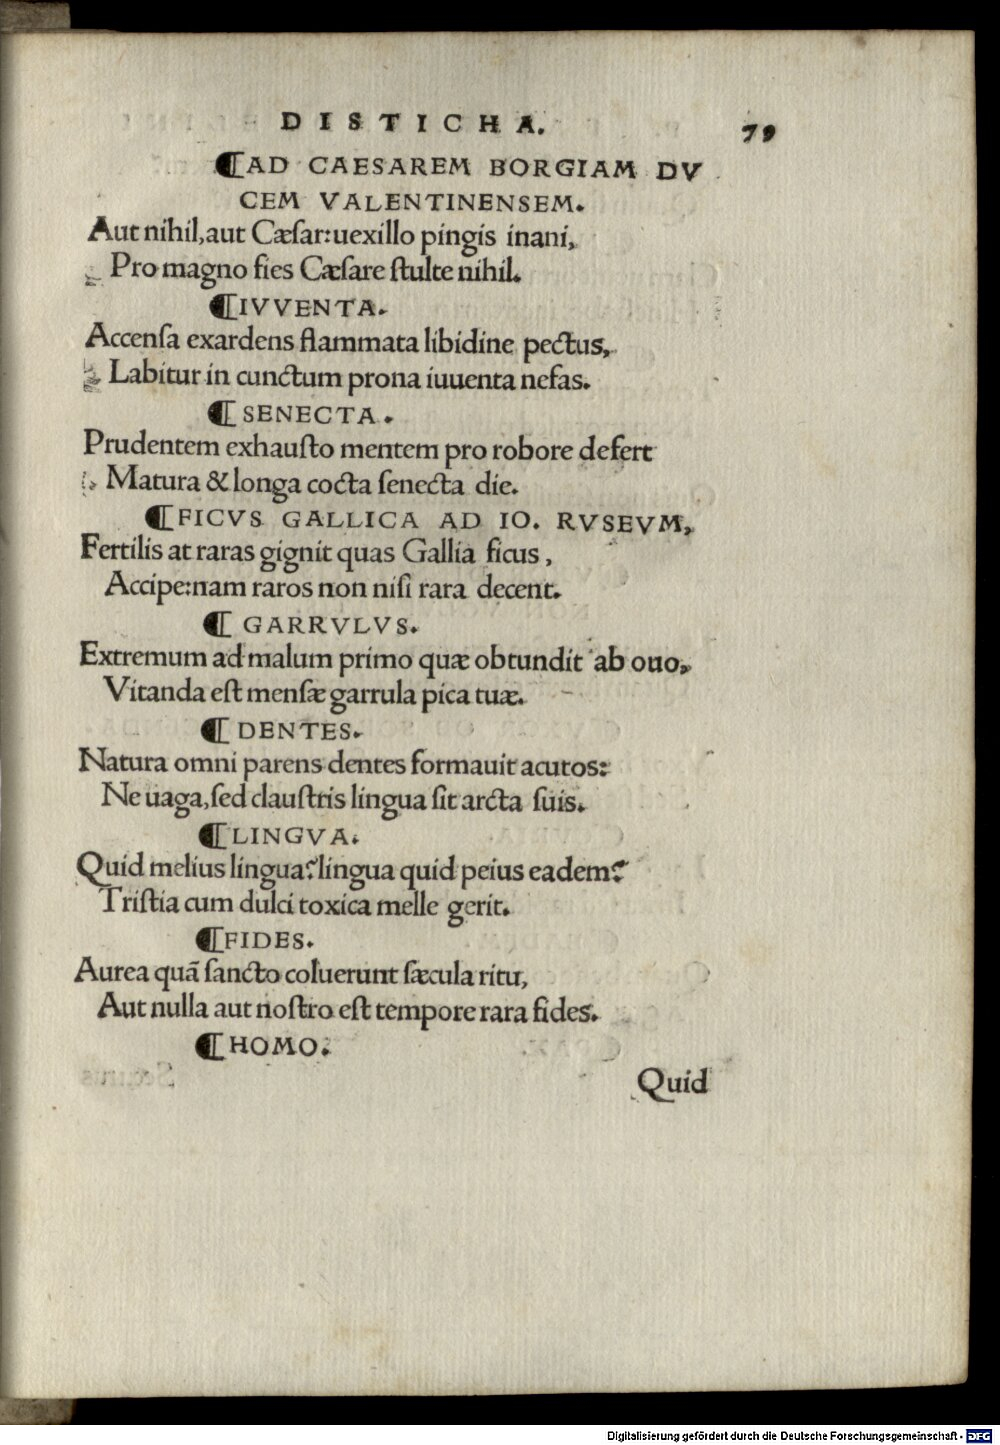 DISTICHA. 79
⸿AD CAESAREM BORGIAM DV
CEM VALENTINENSEM.
Aut nihil,aut Cæſar:uexillo pingis inani,
Pro magno fies Cæſare ſtulte nihil.
⸿IVVENTA.
Accenſa exardens flammata libidine pectus,
Labitur in cunctum prona iuuenta nefas.
⸿SENECTA.
Prudentem exhauſto mentem pro robore defert
Matura & longa cocta ſenecta die.
⸿FICVS GALLICA AD IO. RVSEVM,
Fertilis at raras gignit quas Gallia ficus,
Accipe:nam raros non niſi rara decent.
⸿ GARRVLVS.
Extremum ad malum primo quæ obtundit ab ouo,
Vitanda eſt menſæ garrula pica tuæ.
⸿ DENTES.
Natura omni parens dentes formauit acutos:
Ne uaga,ſed clauſtris lingua ſit arcta ſuis.
⸿LINGVA.
Quid melius lingua?lingua quid peius eadem?
Triſtia cum dulci toxica melle gerit.
⸿FIDES.
Aurea quã ſancto coluerunt ſæcula ritu,
Aut nulla aut noſtro eſt tempore rara fides.
⸿HOMO.
Quid
Digitalisierung gefördert durch die Deutsche Forschungsgemeinschaft - DFG